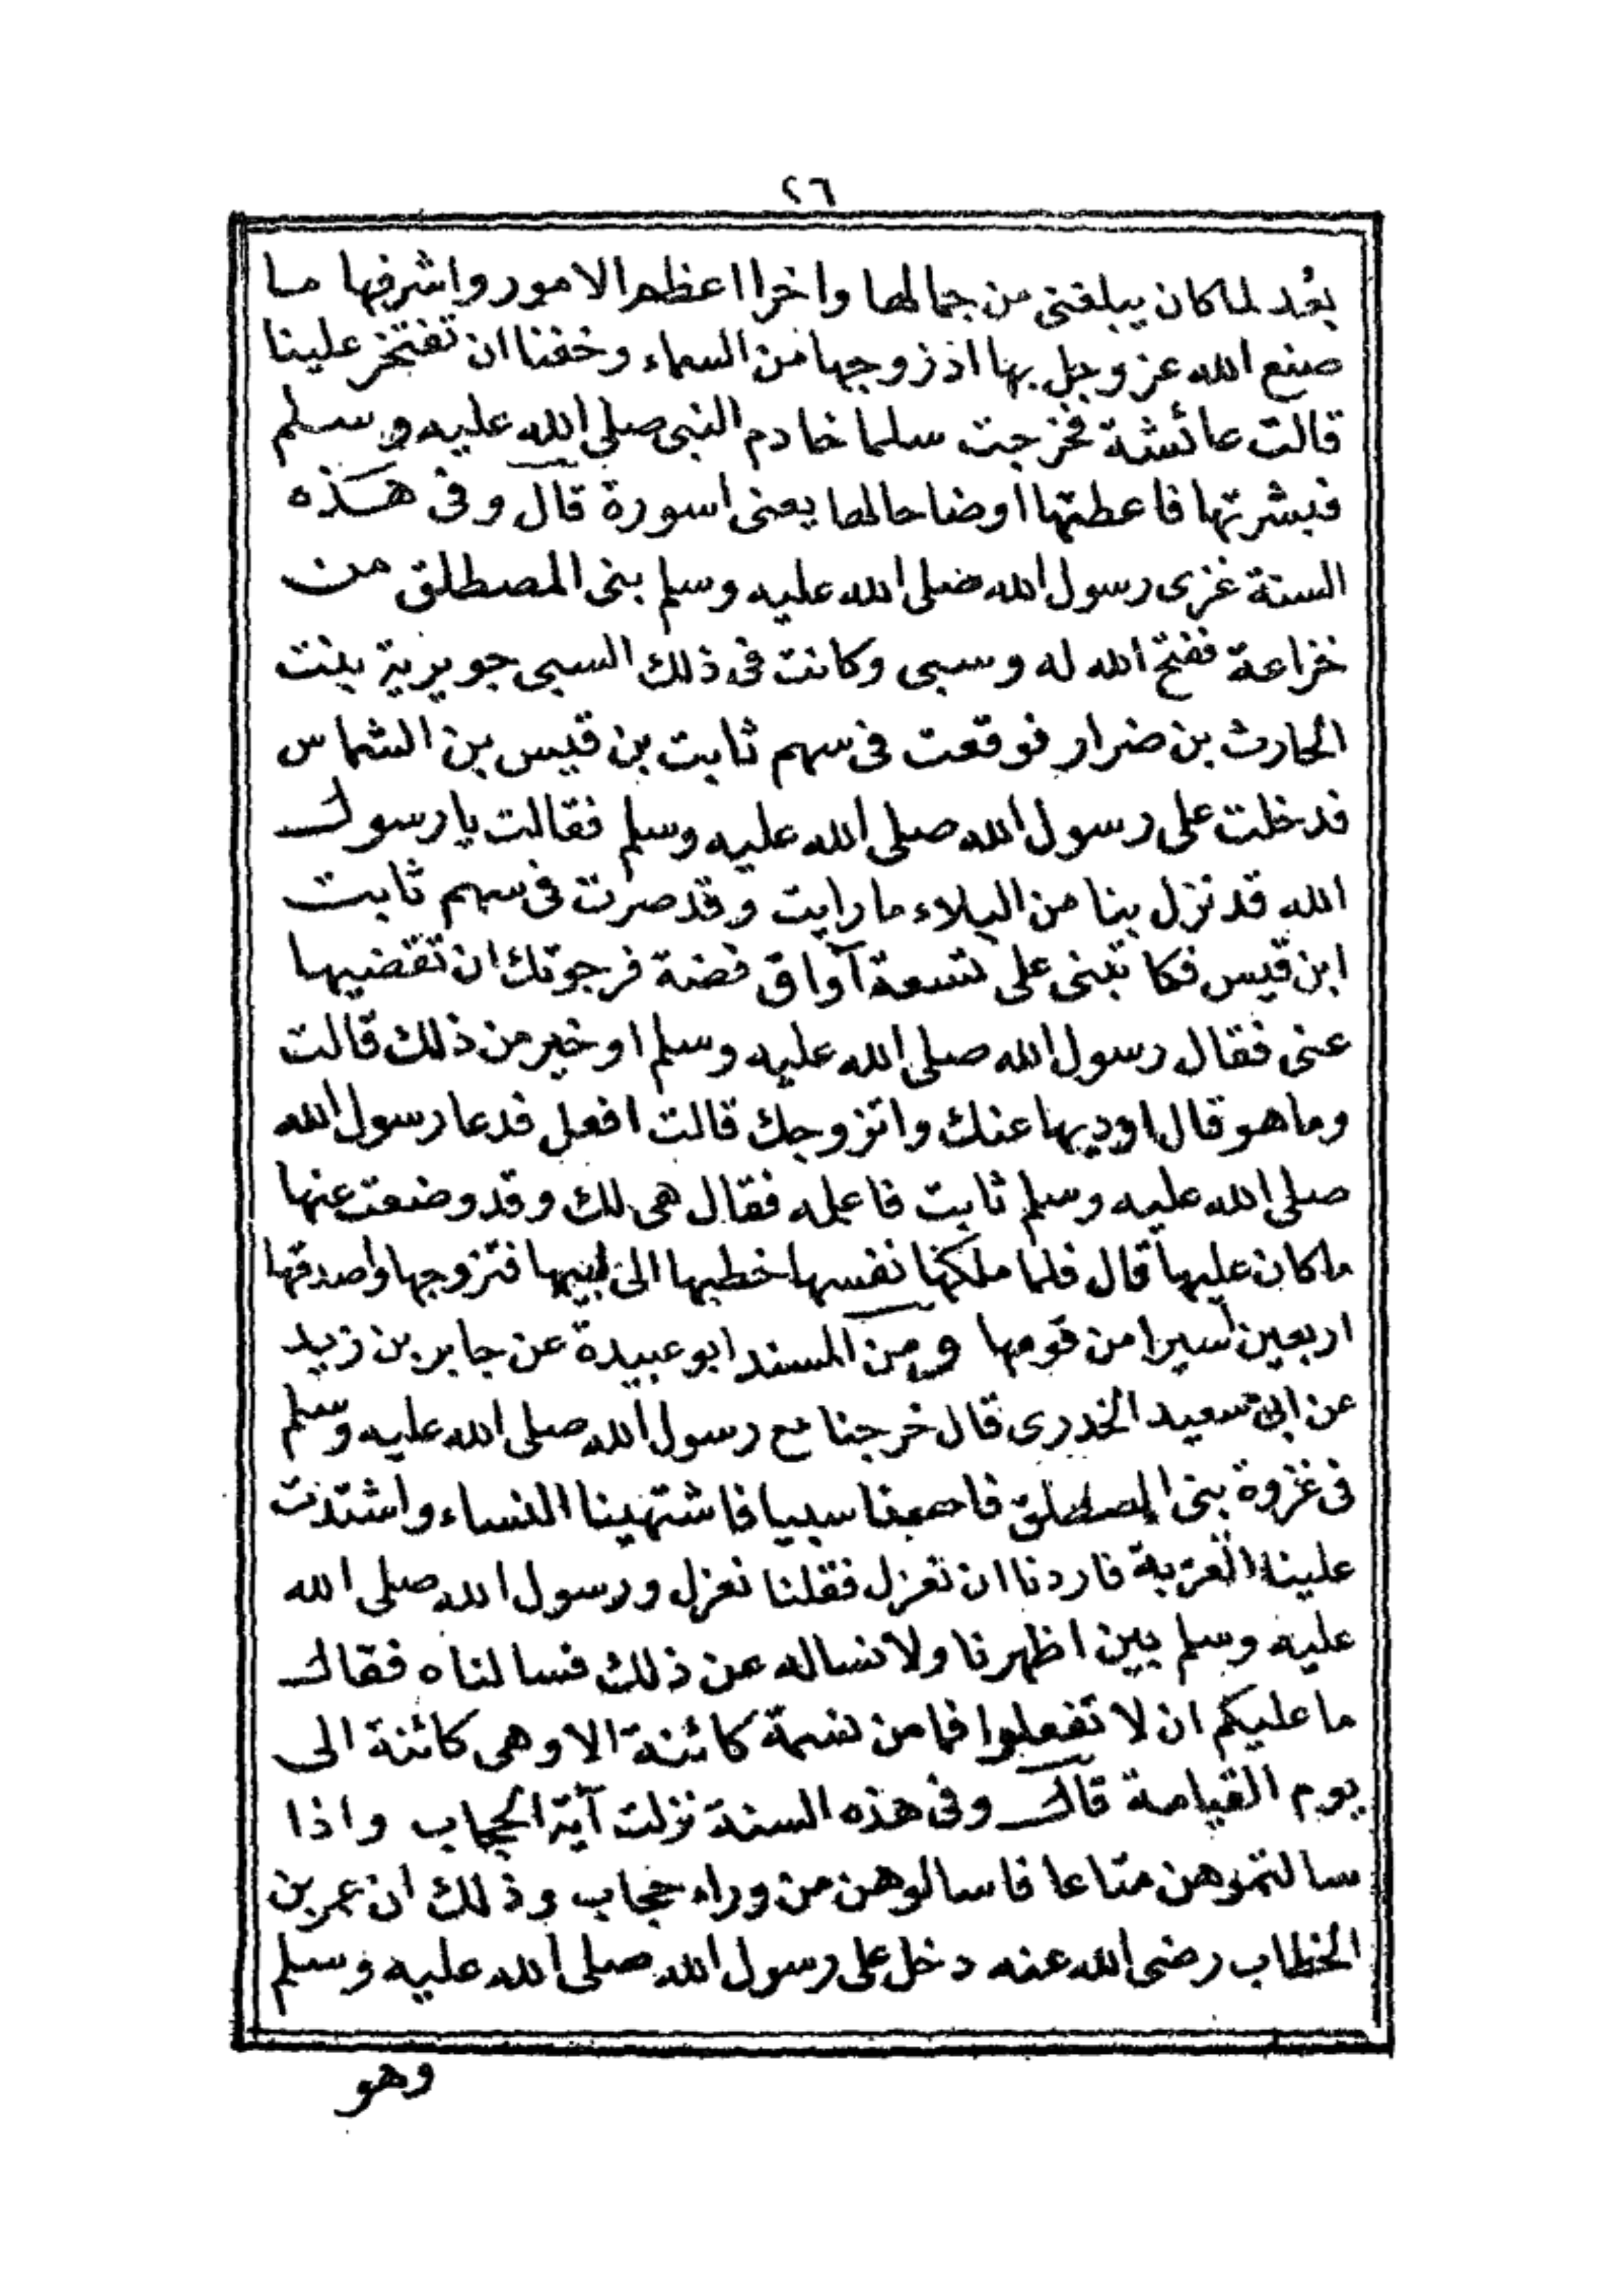 ٢٦
بعُد لما كان يبلغنى من جمالها واخرا اعظم الامور واشرفها ما
صنع الله عز وجل بها اذ زوجها من السماء وخفنا ان تفتخر علينا
قالت عائشة فخرجت سلما خادم النبى صلى الله عليه وسلم
فبشرتها فاعطتها اوضاحا لها يعنى اسورة قال وفى هذه
السنة غزى رسول الله صلى الله عليه وسلم بنى المصطلق من
خزاعة ففتح الله له وسبى وكانت فى ذلك السبى جويرية بنت
الحارث بن ضرار فوقعت فى سهم ثابت بن قيس بن الشماس
فدخلت على رسول الله صلى الله عليه وسلم فقالت يا رسول
الله قد نزل بنا من البلاء ما رايت وقد صرت فى سهم ثابت
ابن قيس فكاتبنى على تسعة آواق فضة فرجوتك ان تقضيها
عنى فقال رسول الله صلى الله عليه وسلم او خير من ذلك قالت
وما هو قال اوديها عنك واتزوجك قالت افعل فدعا رسول الله
صلى الله عليه وسلم ثابت فاعلمه فقال هى لك وقد وضعت عنها
ما كان عليها قال فلما ملكها نفسها خطبها الى ابيها فتزوجها واصدقها
اربعين اسيرا من قومها ومن المسند ابو عبيدة عن جابر بن زيد
عن ابى سعيد الخدرى قال خرجنا مع رسول الله صلى الله عليه وسلم
فى غزوة بنى المصطلق فاصبنا سبيا فاشتهينا النساء واشتدت
علينا العزبة فاردنا ان نعزل فقلنا نعزل ورسول الله صلى الله
عليه وسلم بين اظهرنا ولا نساله عن ذلك فسالناه فقال
ما عليكم ان لا تفعلوا فما من نسمة كائنة الا وهى كائنة الى
يوم القيامة قال وفى هذه السنة نزلت آية الحجاب واذا
سالتموهن متاعا فاسالوهن من وراء حجاب وذلك ان عمر بن
الخطاب رضى الله عنه دخل على رسول الله صلى الله عليه وسلم
وهو